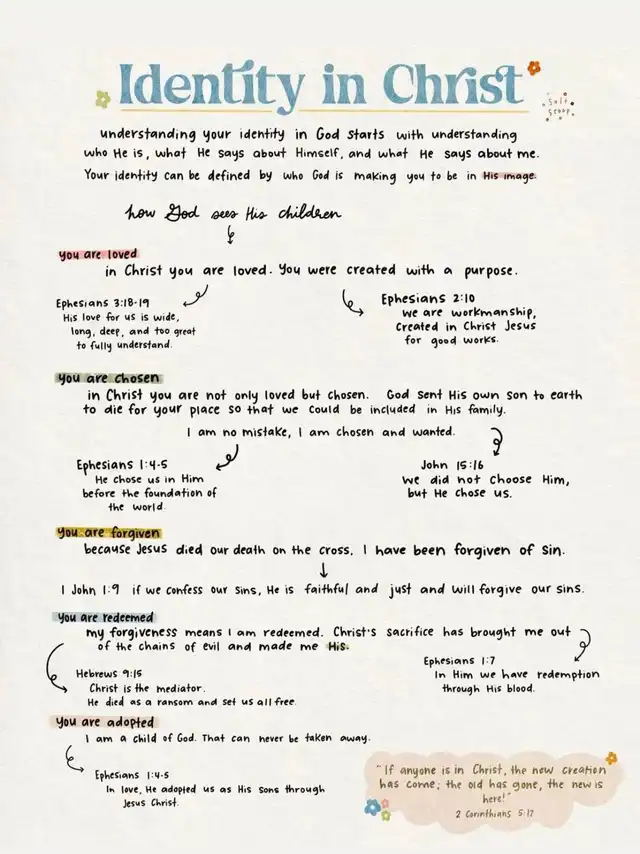 Identity in Christ
Salt
Story
understanding your identity in God starts with understanding
who He is, what He says about Himself, and what He says about me.
Your identity can be defined by who God is making you to be in His image.
how God sees His children
you are loved
in Christ you are loved. You were created with a purpose.
Ephesians 3:18-19
His love for us is wide,
long, deep, and too great
to fully understand.
Ephesians 2:10
we are workmanship,
created in Christ Jesus
for good works.
you are chosen
in Christ you are not only loved but chosen. God sent His own son to earth
to die for your place so that we could be included in His family.
I am no mistake, I am chosen and wanted.
Ephesians 1:4-5
He chose us in Him
before the foundation of
the world.
John 15:16
we did not choose Him,
but He chose us.
You are forgiven
because Jesus died our death on the cross, I have been forgiven of sin.
1 John 1:9 if we confess our sins, He is faithful and just and will forgive our sins.
You are redeemed
my forgiveness means I am redeemed. Christ's sacrifice has brought me out
of the chains of evil and made me His.
Hebrews 9:15
Christ is the mediator.
He died as a ransom and set us all free.
Ephesians 1:7
In Him we have redemption
through His blood.
You are adopted
I am a child of God. That can never be taken away.
Ephesians 1:4-5
In love, He adopted us as His sons through
Jesus Christ.
"If anyone is in Christ, the new creation
has come; the old has gone, the new is
here!"
2 Corinthians 5:17